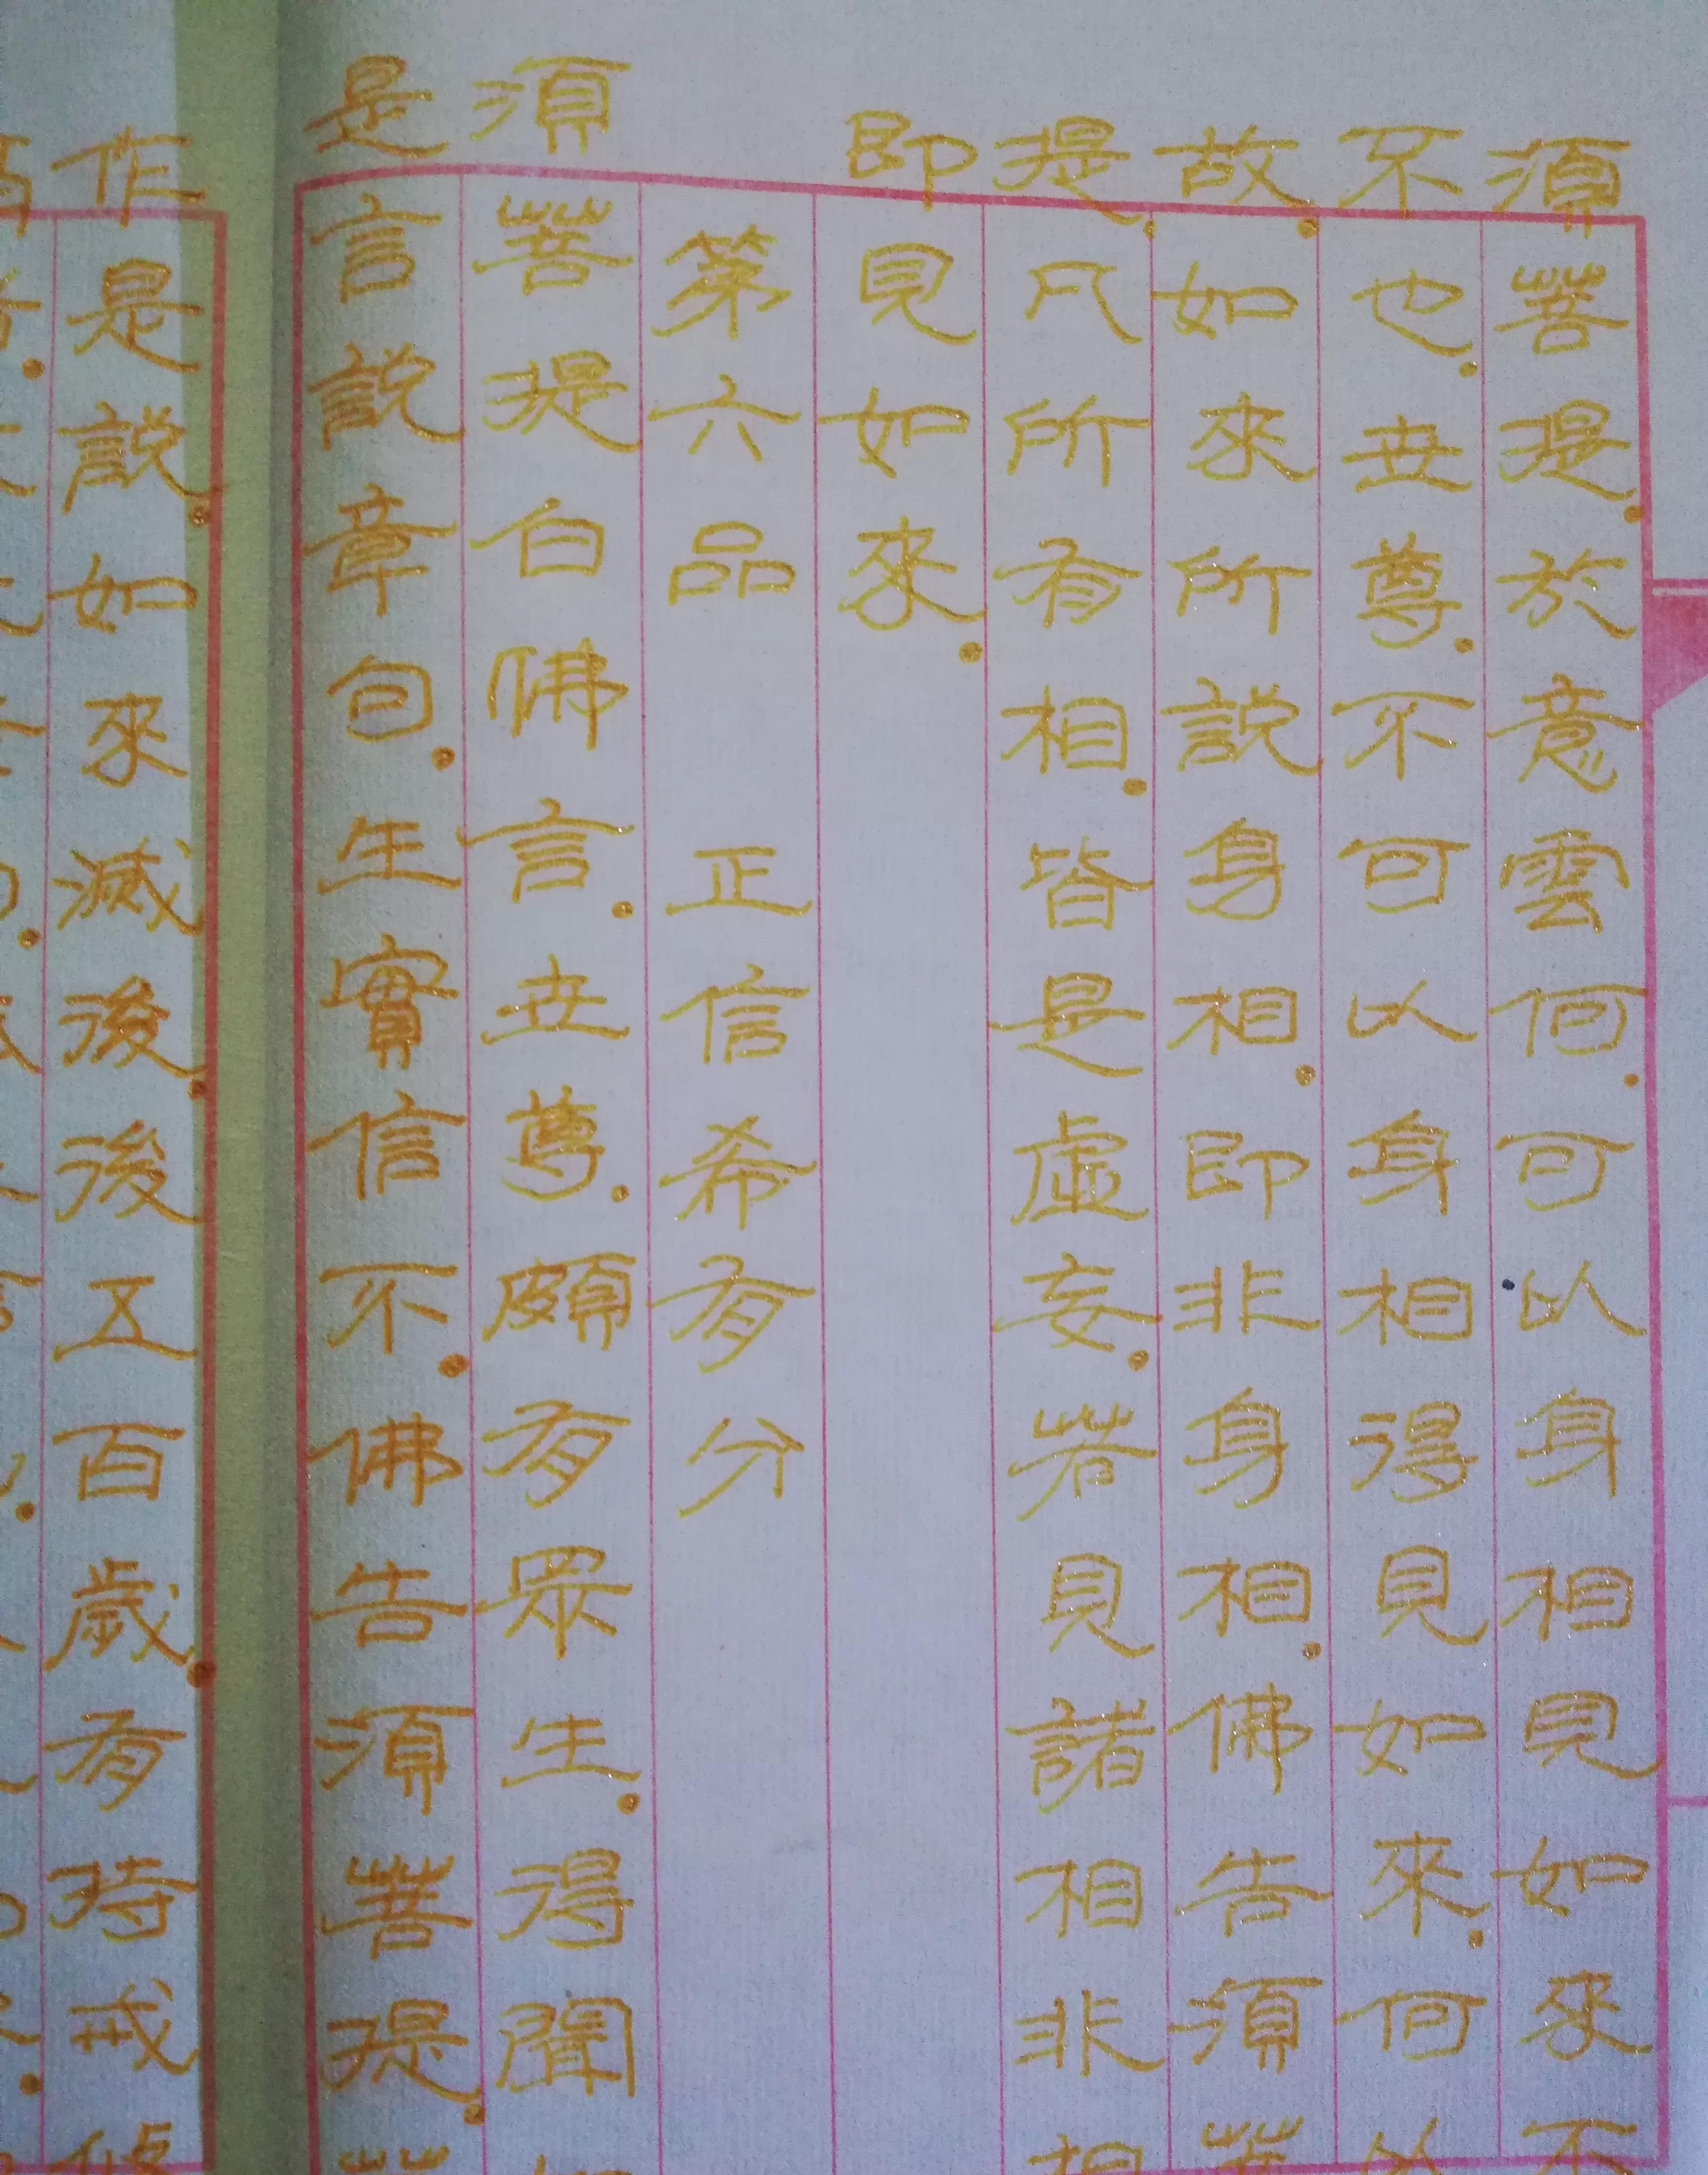 須菩提.於意雲何.可以身相見如來不
不也.世尊.不可以身相得見如來.何以
故.如來所說身相.即非身相.佛告須菩
提.凡所有相.皆是虛妄.若見諸相非相
即見如來.
第六品 正信希有分
須菩提白佛言.世尊.頗有眾生.得聞如
是言說章句.生實信不.佛告須菩提.
作是說.如來滅後.後五百歲.有持戒修